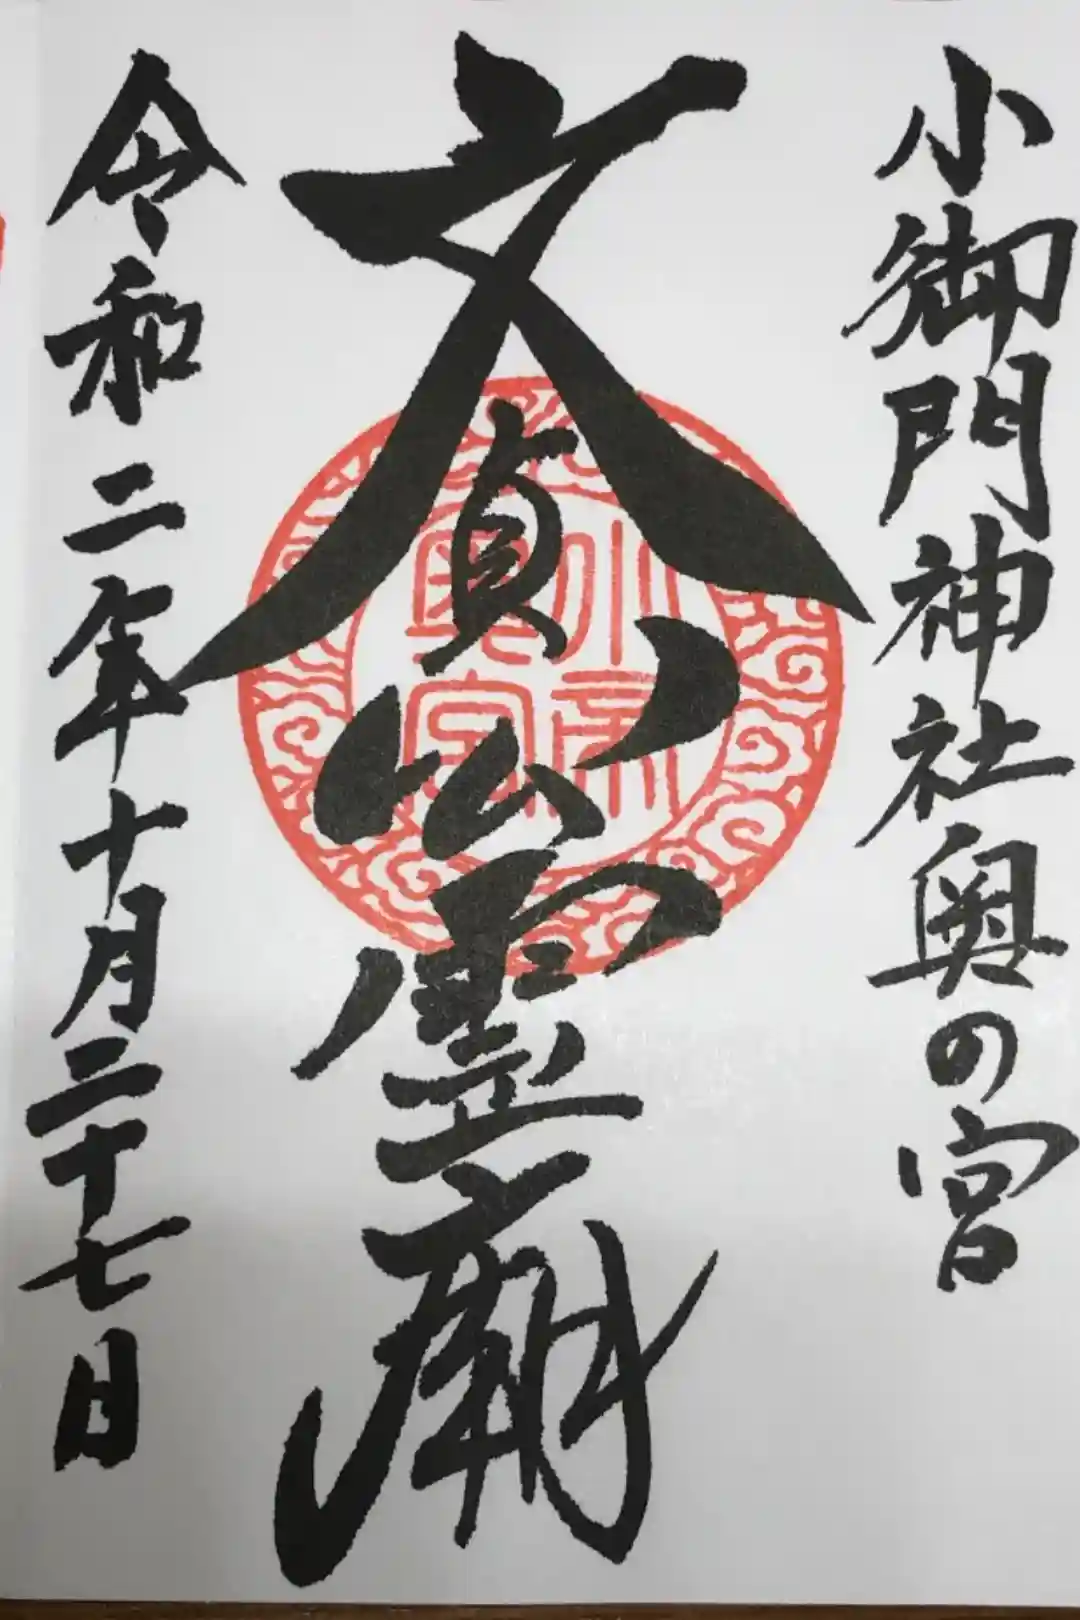 小御門神社奥の宮
文貞公霊廟
令和二年十月二十七日